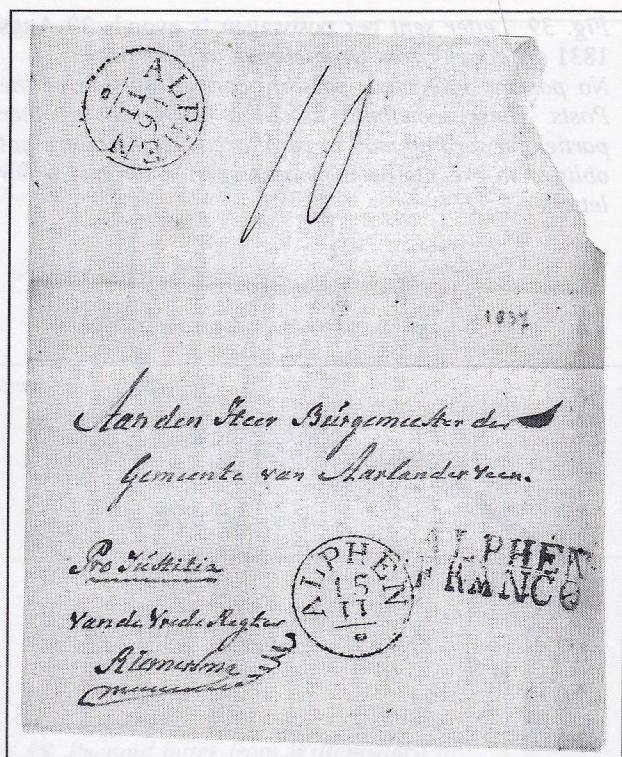 ALPHEN
16
11
1837
Aan den Heer Burgemeester der
Gemeente van Aarlanderveen.
Pro Justitia
van de Vrede Regter
ALPHEN
15
11
ALPHEN
FRANCO